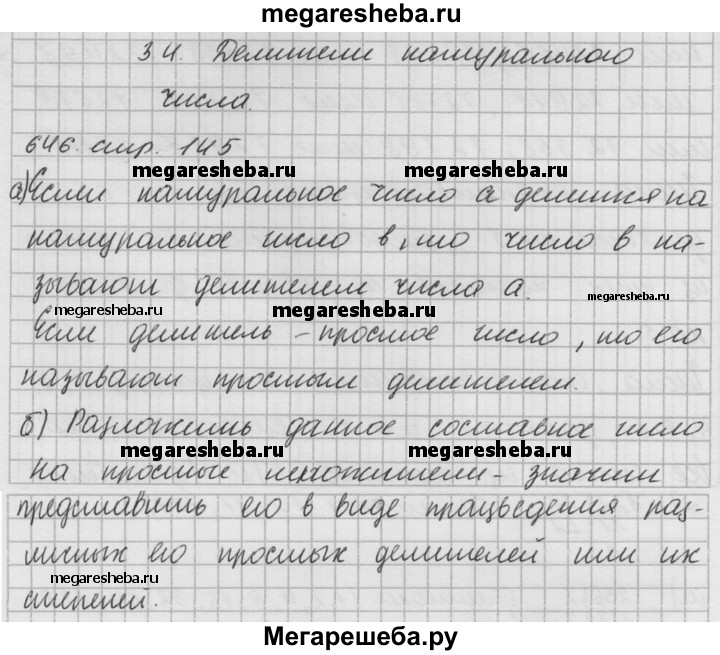 megaresheba.ru
3.4. Делители натурального
числа.
646. стр. 145
megaresheba.ru megaresheba.ru
а) Если натуральное число а делится на
натуральное число в, то число в на-
зывают делителем числа а.
megaresheba.ru megaresheba.ru megaresheba.ru
Если делитель – простое число, то его
называют простым делителем.
б) Разложить данное составное число
megaresheba.ru megaresheba.ru
на простые множители – значит
представить его в виде працьведения раз-
личных его простых делителей или их
megaresheba.ru
степеней.
Мегарешеба.ру